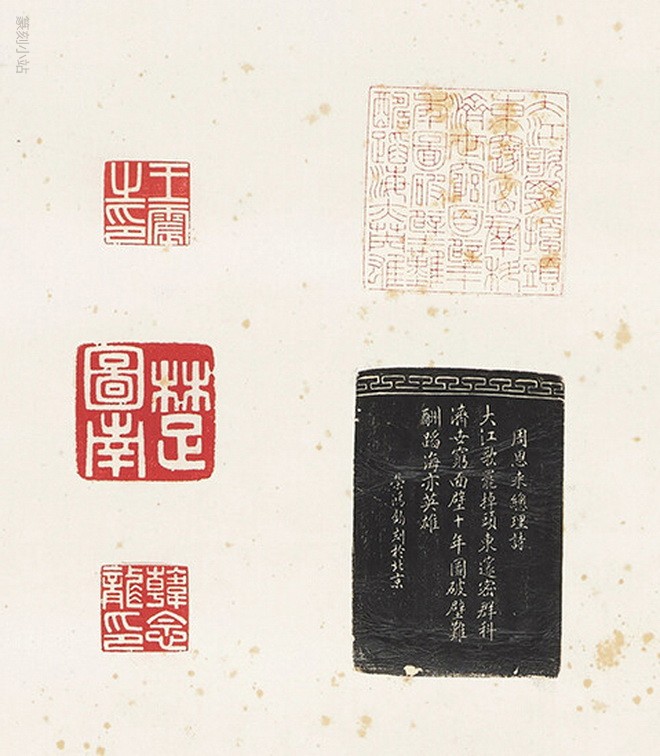 篆刻小站
大江歌罷掉頭
東邃密群科
濟世窮面壁
十年圖破壁難
酬蹈海亦英雄
王震
之印
楚
圖南
韓念
龍印
周恩來總理詩
大江歌罷掉頭東邃密群科
濟世窮面壁十年圖破壁難
酬蹈海亦英雄
刻於北京